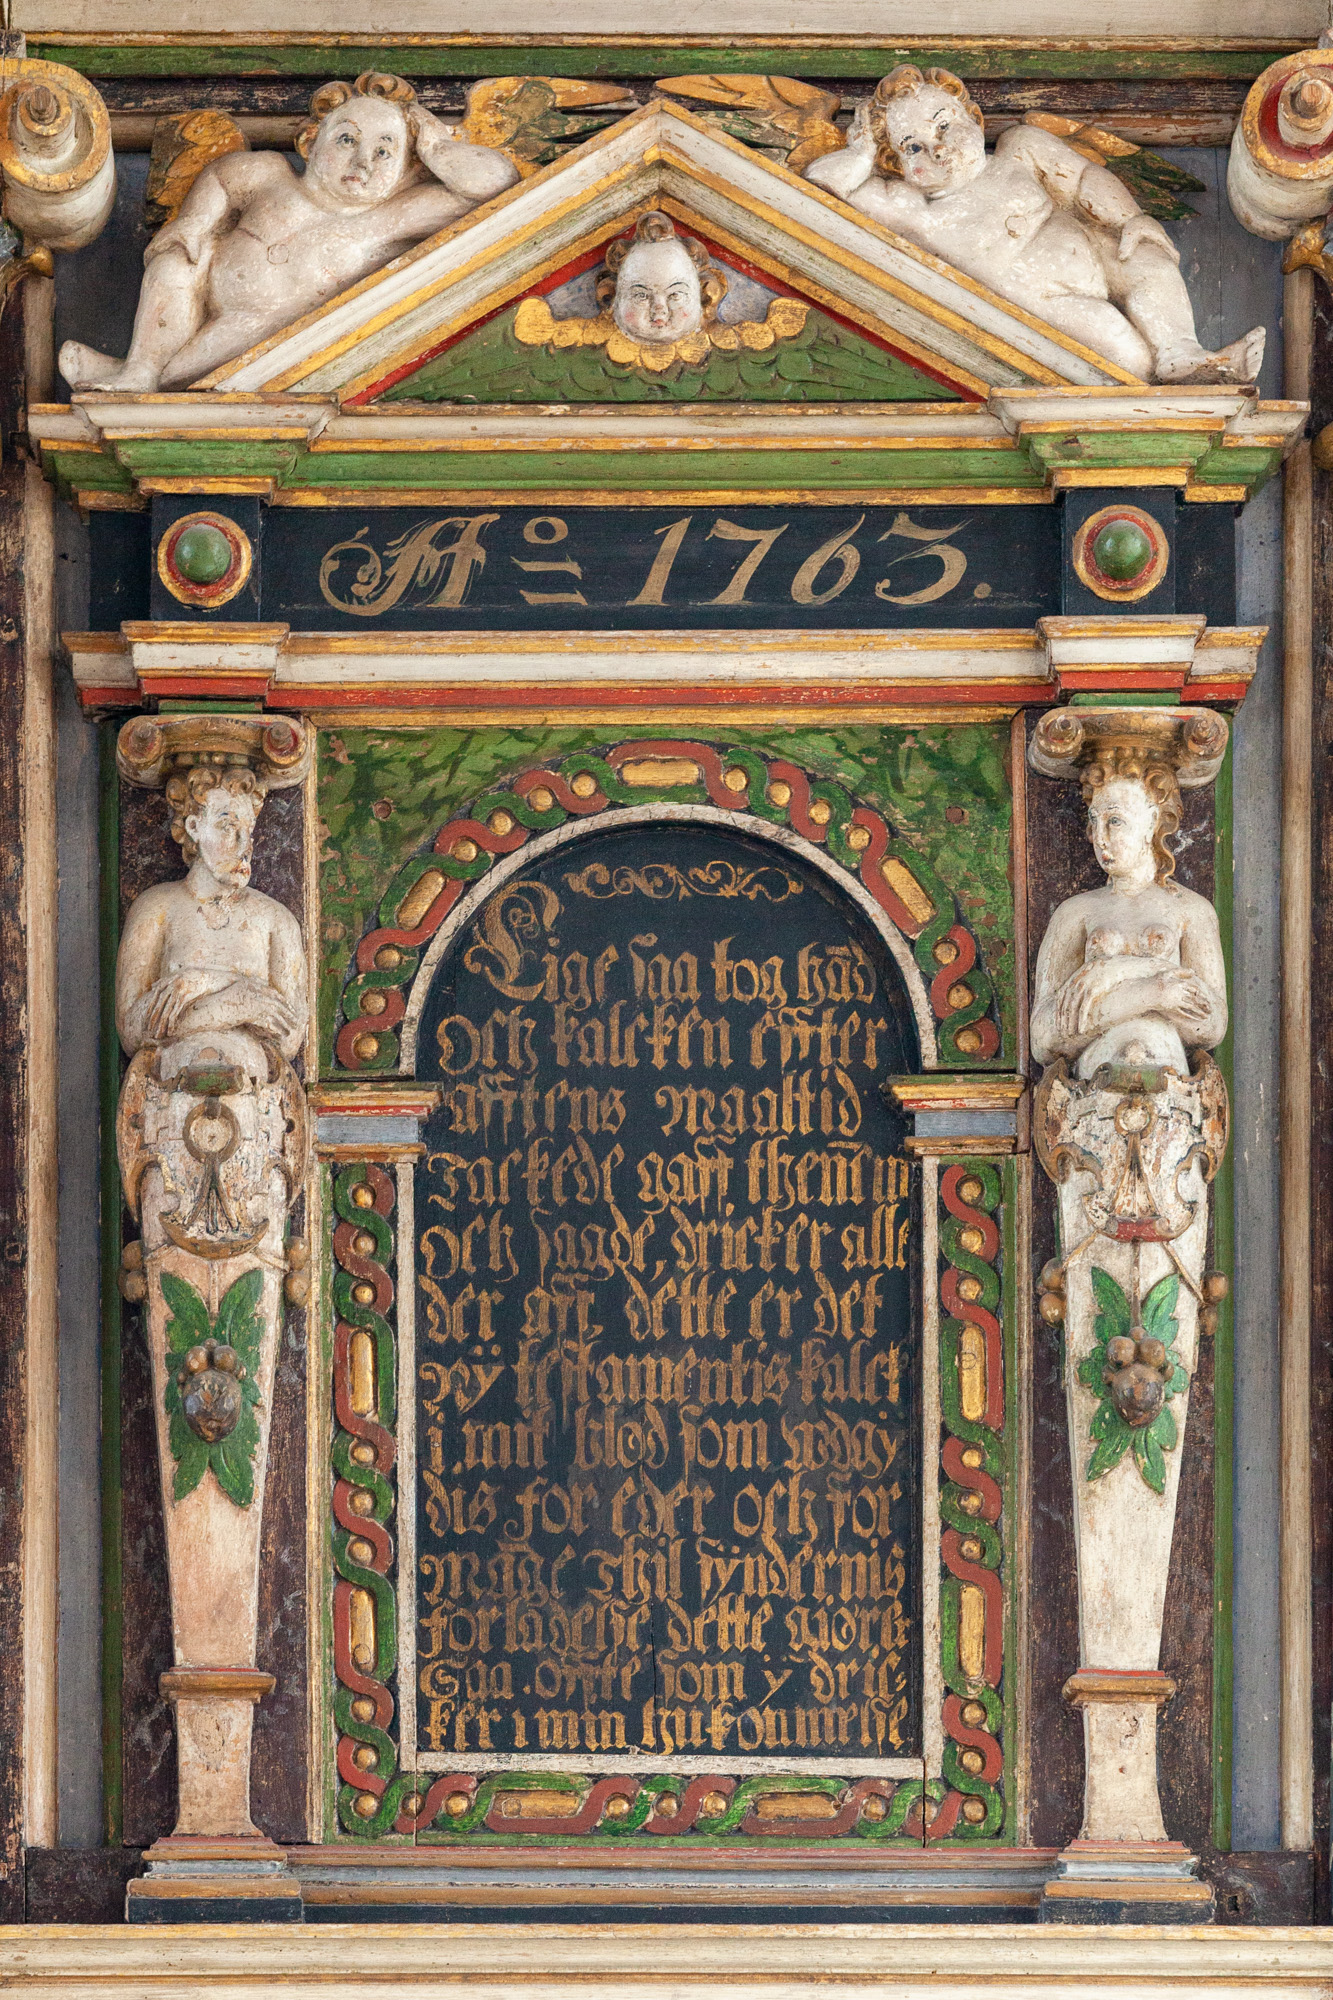 Ao 1763.
Lige saa tog hād
och kalcken effter
afftens maaltid
Tackede gaff them̄ in
och sagde, dricker alle
der aff, dette er det
ny testamentis kalck
i mit blod som wdgy
dis for eder och for
māge Thil syndernis
forladelse dette giører
Saa offte som y dric-
ker i min hukommelse